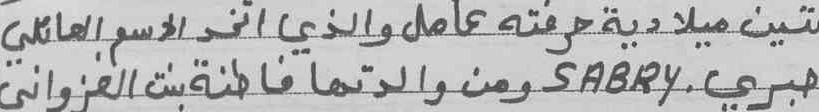 تين ميلادية حرفته عامل والذي اتخذ الاسم العائلي
صبري. SABRY ومن والدتها فاطنة بنت الغزواني